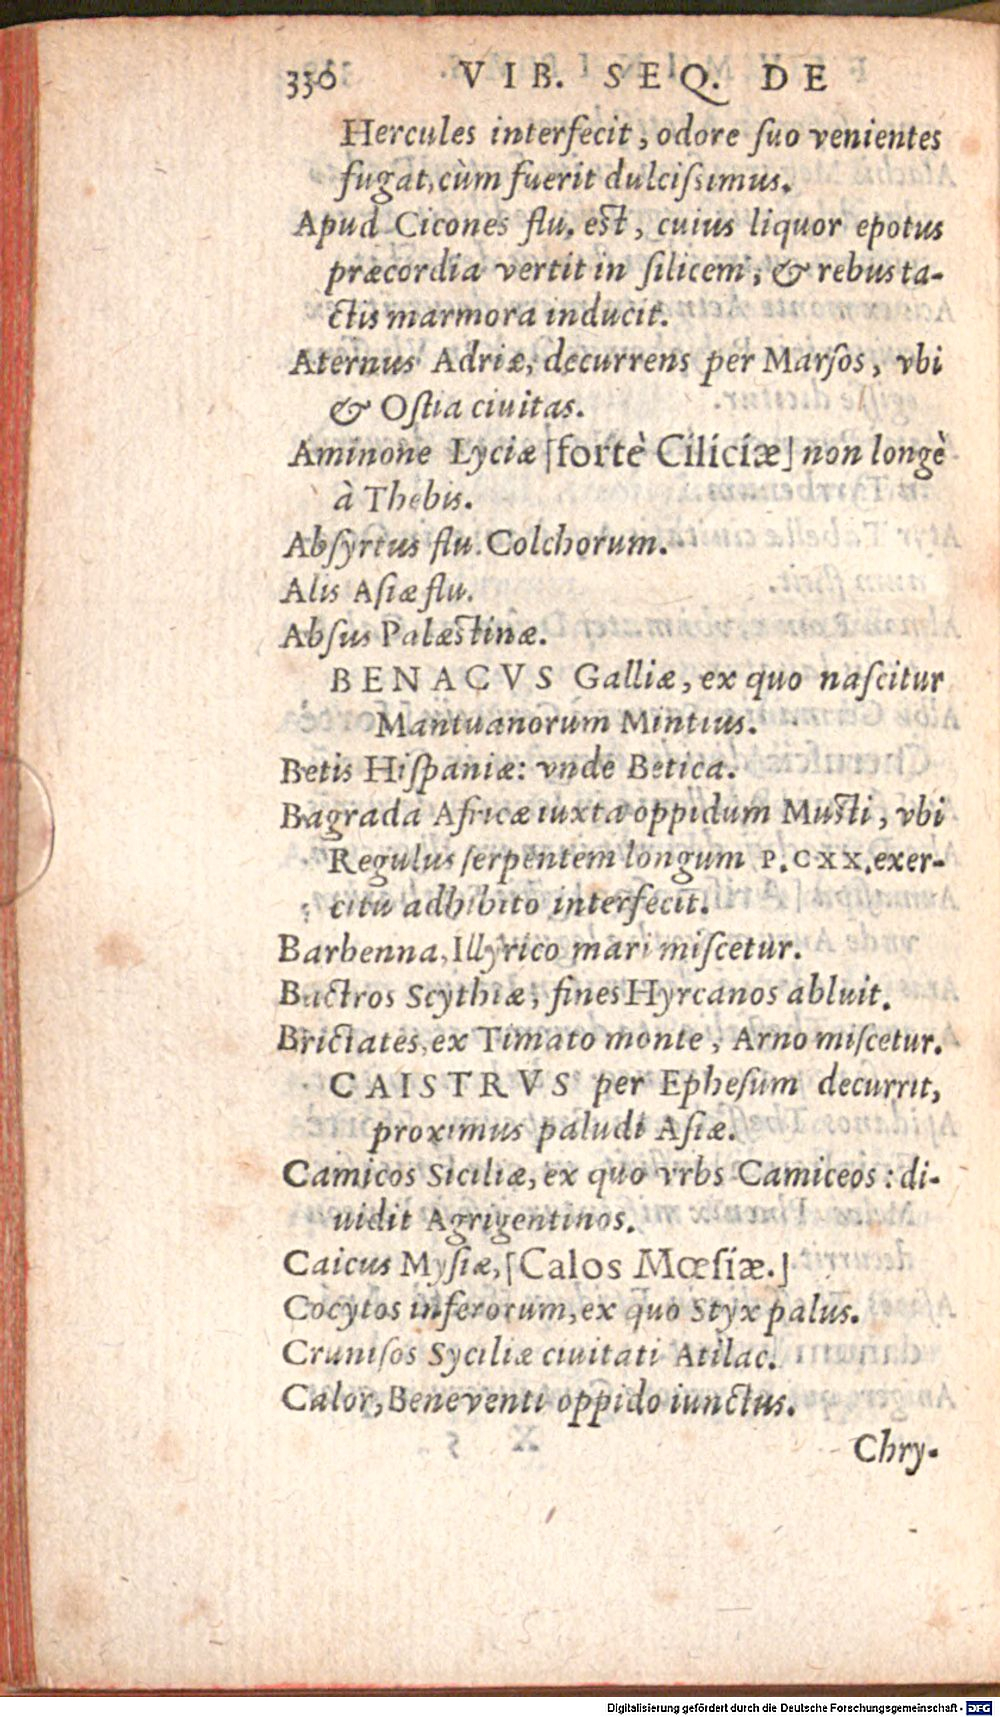 330 VIB. SEQ. DE
Hercules interfecit, odore ſuo venientes
fugat, cùm fuerit dulciſsimus.
Apud Cicones flu. est, cuius liquor epotus
præcordia vertit in ſilicem, & rebus ta-
ctis marmora inducit.
Aternus Adriæ, decurrens per Marſos, vbi
& Oſtia ciuitas.
Aminone Lyciæ [fortè Ciliciæ] non longè
à Thebis.
Abſyrtus flu. Colchorum.
Alis Aſiæ flu.
Abſus Palæstinæ.
BENACVS Galliæ, ex quo naſcitur
Mantuanorum Mintius.
Betis Hiſpaniæ: vnde Betica.
Bagrada Africæ iuxta oppidum Musti, vbi
Regulus ſerpentem longum P. CXX. exer-
citu adhibito interfecit.
Barbenna, Illyrico mari miſcetur.
Bactros Scythiæ, fines Hyrcanos abluit.
Brictates, ex Timato monte, Arno miſcetur.
CAISTRVS per Epheſum decurrit,
proximus paludi Aſiæ.
Camicos Siciliæ, ex quo vrbs Camiceos: di-
uidit Agrigentinos.
Caicus Myſiæ, [Calos Mœſiæ.]
Cocytos inferorum, ex quo Styx palus.
Cruniſos Syciliæ ciuitati Atilac.
Calor, Beneventi oppido iunctus.
Chry-
Digitalisierung gefördert durch die Deutsche Forschungsgemeinschaft - DFG